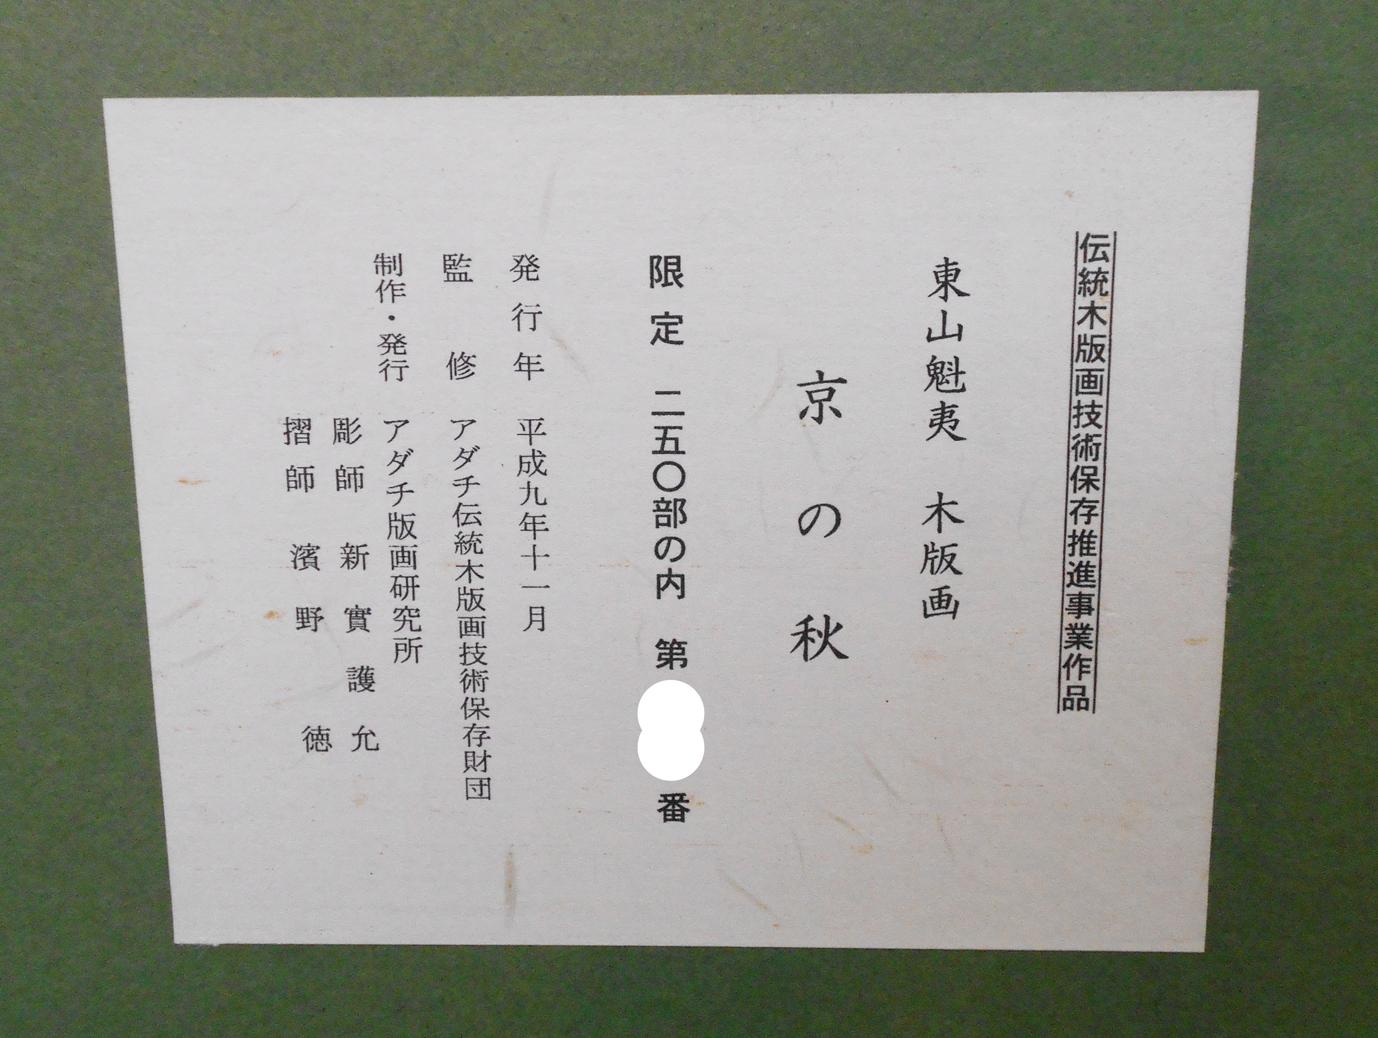 伝統木版画技術保存推進事業作品
東山魁夷 木版画
京の秋
限定 二五〇部の内 第 番
発行年 平成九年十一月
監修 アダチ伝統木版画技術保存財団
制作・発行 アダチ版画研究所
彫師 新實護允
摺師 濱野 徳